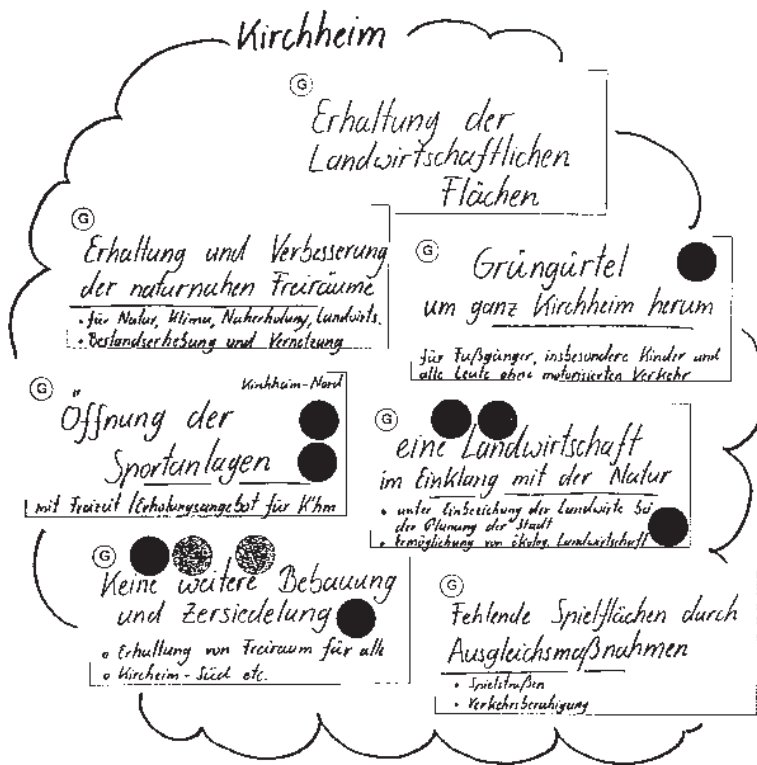 Kirchheim
G
Erhaltung der
Landwirtschaftlichen
Flächen
G
Erhaltung und Verbesserung
der naturnahen Freiräume
• für Natur, Klima, Naherholung, Landwirts.
• Bestandserhebung und Vernetzung
G
Grüngürtel
um ganz Kirchheim herum
für Fußgänger, insbesondere Kinder und
alle Leute ohne motorisierten Verkehr
G
Kirchheim-Nord
Öffnung der
Sportanlagen
mit Freizeit / Erholungsangebot für K'hm
G
eine Landwirtschaft
im Einklang mit der Natur
• unter Einbeziehung der Landwirte bei
der Planung der Stadt
• Ermöglichung von ökolog. Landwirtschaft
G
Keine weitere Bebauung
und Zersiedelung
• Erhaltung von Freiraum für alle
• Kircheim-Süd etc.
G
Fehlende Spielflächen durch
Ausgleichsmaßnahmen
• Spielstraßen
• Verkehrsberuhigung